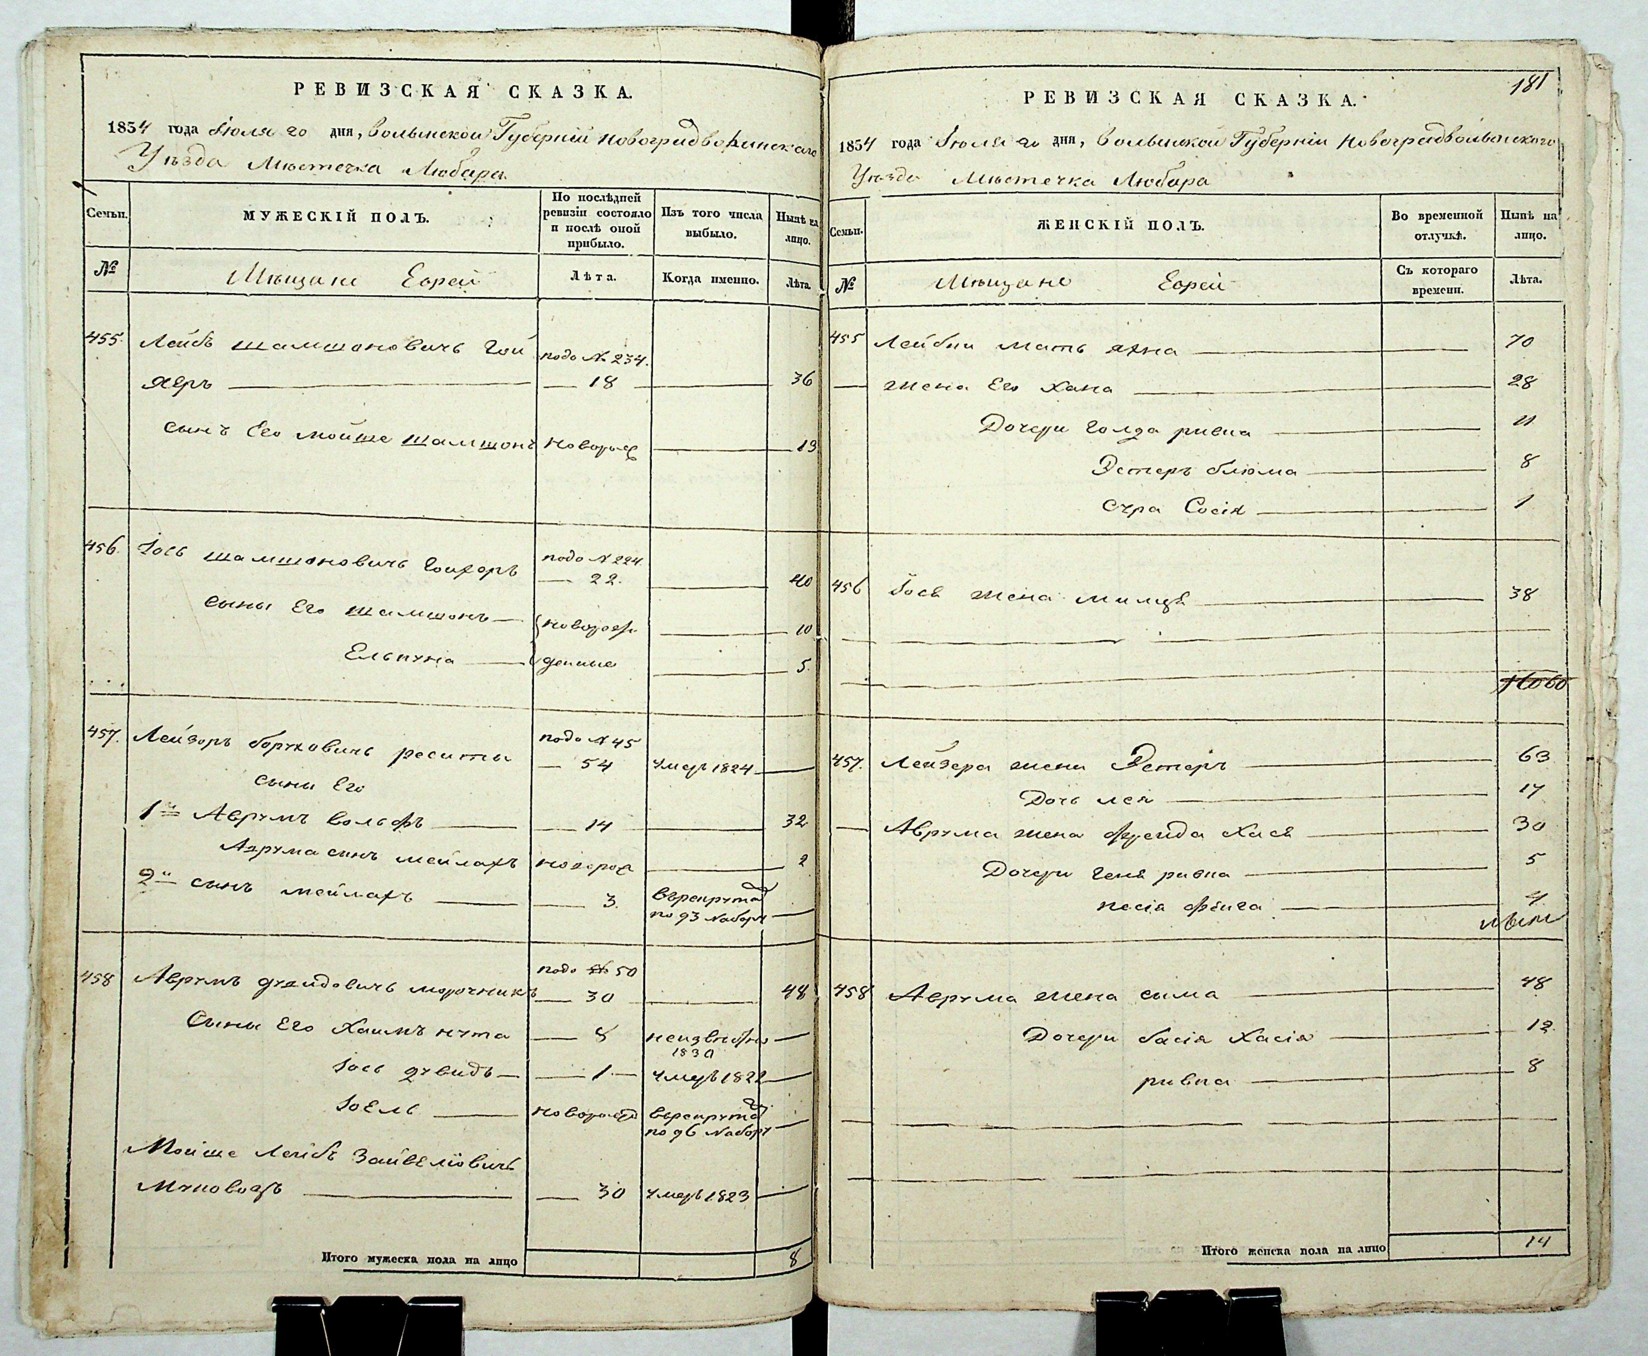 РЕВИЗСКАЯ СКАЗКА.
1834 года Іюля 20 дня, Волынской Губерніи Новоградволынскаго
Уѣзда Мѣстечка Любара
Семьи.
МУЖЕСКІЙ ПОЛЪ.
По послѣдней
ревизіи состояло
и послѣ оной
прибыло.
Изъ того числа
выбыло.
Нынѣ на
лицо.
№
Мѣщане Евреи
Лѣта.
Когда именно.
Лѣта.
455 Лейбъ Шамшоновичъ Гой подъ № 234.
херъ 18 36
сынъ Его Мойше Шамшонъ новорож 13
456. Іось Шамшоновичъ Гойхеръ подъ № 224
22. 40
сыны Его Шамшонъ новорож 10
Елькуна денные 5
457. Лейзоръ Боруховичъ подъ № 45
54 умеръ 1824
сыны Его
1й Аврумъ Вольфъ 14 32
Аврума сынъ Мейлахъ новорож 2
2й сынъ Мейлахъ 3 въ рекрута
по 93 набору
458 Аврумъ Дувидовичъ подъ № 50
30 48
Сыны Его Хаимъ Нута 8 неизвѣстно
1830
Іось Дувидъ 1 умеръ 1822
Іоель новорожд въ рекрута
по 96 набору
Мойше Лейбъ Зайвелювичъ
30 умеръ 1823
Итого мужеска пола на лицо 8
181
РЕВИЗСКАЯ СКАЗКА.
1834 года Іюля 20 дня, Волынской Губерніи Новоградволынскаго
Уѣзда Мѣстечка Любара
Семьи.
ЖЕНСКІЙ ПОЛЪ.
Во временной
отлучкѣ.
Нынѣ на
лицо.
№
Мѣщане Евреи
Съ котораго
времени.
Лѣта.
455 Лейбы мать Яхна 70
жена Его Хана 28
Дочери Голда Ривка 11
Эстеръ Блюма 8
Сура Сосія 1
456 Іося жена 38
457. Лейзера жена Эстеръ 63
Дочь Лея 17
Аврума жена Фрейда Хася 30
Дочери Геня Ривка 5
Песія Фейга
458 Аврума жена Сима 48
Дочери Басія Хасія 12
Ривка 8
Итого женска пола на лицо 14